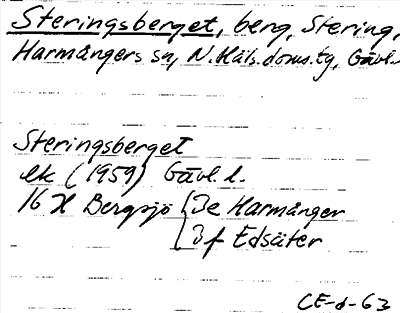 Steringsberget, berg, Stering,
Harmångers sn, N. Häls. doms.tg, Gävl.l.
Steringsberget
ek (1959) Gävl. l.
16 H Bergsjö 3e Harmånger
3f Edsäter
CE-d-63